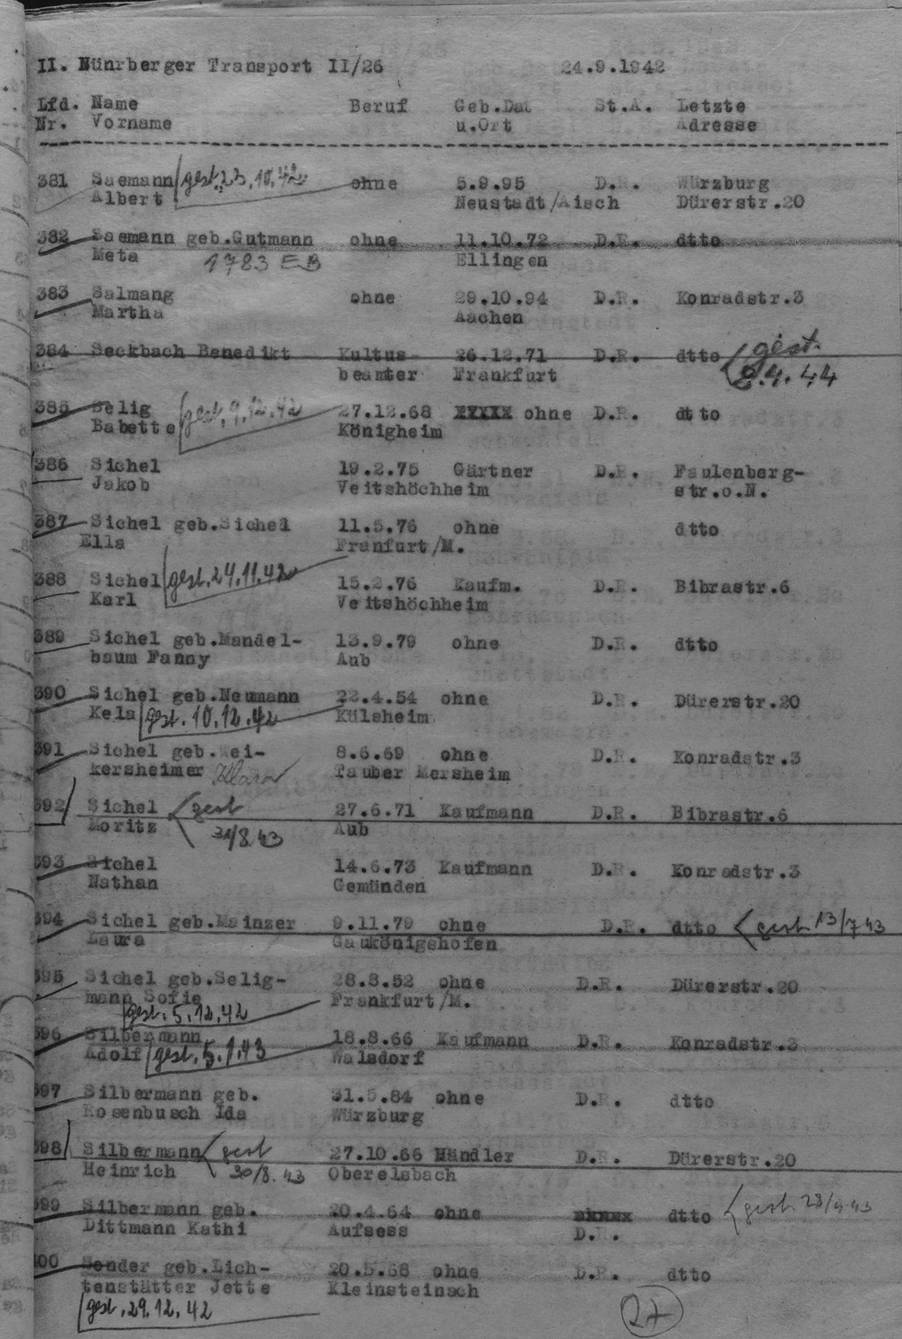 II. Nünrberger Transport II/26 24.9.1942
Lfd. Name Beruf Geb.Dat St.A. Letzte
Nr. Vorname u.Ort Adresse
381 Saemann gest. 23.10.42 ohne 5.9.95 D.R. Würzburg
Albert Neustadt/Aisch Dürerstr.20
382 Saemann geb.Gutmann ohne 11.10.72 D.R. dtto
Meta 1783 EB Ellingen
383 Salmang ohne 29.10.94 D.R. Konradstr.3
Martha Aachen
384 Seckbach Benedikt Kultus- 26.12.71 D.R. dtto gest.
beamter Frankfurt 2.4.44
385 Selig gest. 9.12.42 27.12.68 XXXXX ohne D.R. dtto
Babette Königheim
386 Sichel 19.2.75 Gärtner D.R. Faulenberg-
Jakob Veitshöchheim str.o.N.
387 Sichel geb.Sichel 11.5.76 ohne dtto
Ella Franfurt/M.
388 Sichel gest. 24.11.42 15.2.76 Kaufm. D.R. Bibrastr.6
Karl Veitshöchheim
389 Sichel geb.Mandel- 13.9.79 ohne D.R. dtto
baum Fanny Aub
390 Sichel geb.Neumann 22.4.54 ohne D.R. Dürerstr.20
Kela gest. 10.12.42 Külsheim
391 Sichel geb.Wei- 8.6.69 ohne D.R. Konradstr.3
kersheimer Klara Tauber Mersheim
392 Sichel gest Kaufmann 27.6.71 D.R. Bibrastr.6
Moritz 31/8.43 Aub
393 Sichel 14.6.73 Kaufmann D.R. Konradstr.3
Nathan Gemünden
394 Sichel geb.Mainzer 9.11.79 ohne D.R. dtto gest. 13/7 43
Laura Gaukönigshofen
395 Sichel geb.Selig- 28.8.52 ohne D.R. Dürerstr.20
mann Sofie Frankfurt/M.
gest. 5.12.42
396 Silbermann 18.8.66 Kaufmann D.R. Konradstr.3
Adolf gest. 5.1.43 Walsdorf
397 Silbermann geb. 31.5.84 ohne D.R. dtto
Rosenbusch Ida Würzburg
398 Silbermann gest 27.10.66 Händler D.R. Dürerstr.20
Heinrich 30/8.43 Oberelsbach
399 Silbermann geb. 20.4.64 ohne xxxxx dtto gest. 28/4 43
Dittmann Kathi Aufsess D.R.
400 Sender geb.Lich- 20.5.68 ohne D.R. dtto
tenstätter Jette Kleinsteinach
gest. 29.12.42
27